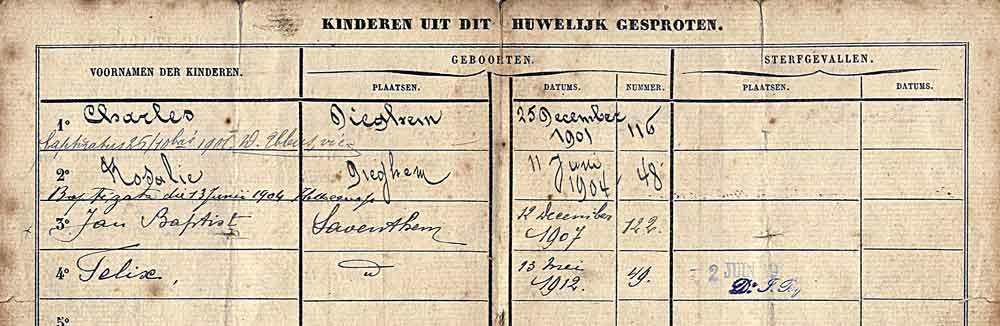 KINDEREN UIT DIT HUWELIJK GESPROTEN.
VOORNAMEN DER KINDEREN.
GEBOORTEN.
STERFGEVALLEN.
PLAATSEN.
DATUMS.
NUMMER.
PLAATSEN.
DATUMS.
1° Charles Dieghem 25 December 1901 116
Baptizatus 25 / 10bris 1901
2° Rosalie Dieghem 11 Juni 1904 48
Baptizata die 13 Junii 1904
3° Jan Baptist Saventhem 12 December 1907 122.
4° Felix, id 13 Mei 1912. 49.
2 JUIN
Dr
5°